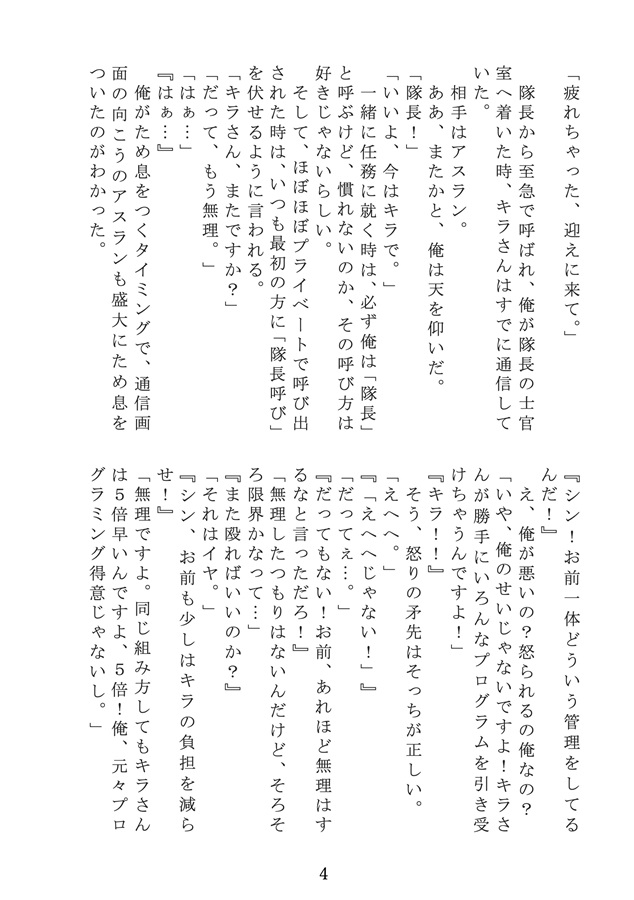 「疲れちゃった、迎えに来て。」
　隊長から至急で呼ばれ、俺が隊長の士官
室へ着いた時、キラさんはすでに通信して
いた。
　相手はアスラン。
　ああ、またかと、俺は天を仰いだ。
「隊長！」
「いいよ、今はキラで。」
　一緒に任務に就く時は、必ず俺は「隊長」
と呼ぶけど、慣れないのか、その呼び方は
好きじゃないらしい。
　そして、ほぼほぼプライベートで呼び出
された時は、いつも最初の方に「隊長呼び」
を伏せるように言われる。
「キラさん、またですか？」
「だって、もう無理。」
「はぁ…」
『はぁ…』
　俺がため息をつくタイミングで、通信画
面の向こうのアスランも盛大にため息を
ついたのがわかった。
『シン！お前一体どういう管理をしてる
んだ！』
　え、俺が悪いの？怒られるの俺なの？
「いや、俺のせいじゃないですよ！キラさ
んが勝手にいろんなプログラムを引き受
けちゃうんですよ！」
『キラ！！』
　そう、怒りの矛先はそっちが正しい。
「えへへ。」
『「えへへじゃない！」』
「だってぇ…。」
『だってもない！お前、あれほど無理はす
るなと言っただろ！』
「無理したつもりはないんだけど、そろそ
ろ限界かなって…」
『また殴ればいいのか？』
「それはイヤ。」
『シン、お前も少しはキラの負担を減ら
せ！』
「無理ですよ。同じ組み方してもキラさん
は５倍早いんですよ、５倍！俺、元々プロ
グラミング得意じゃないし。」
4